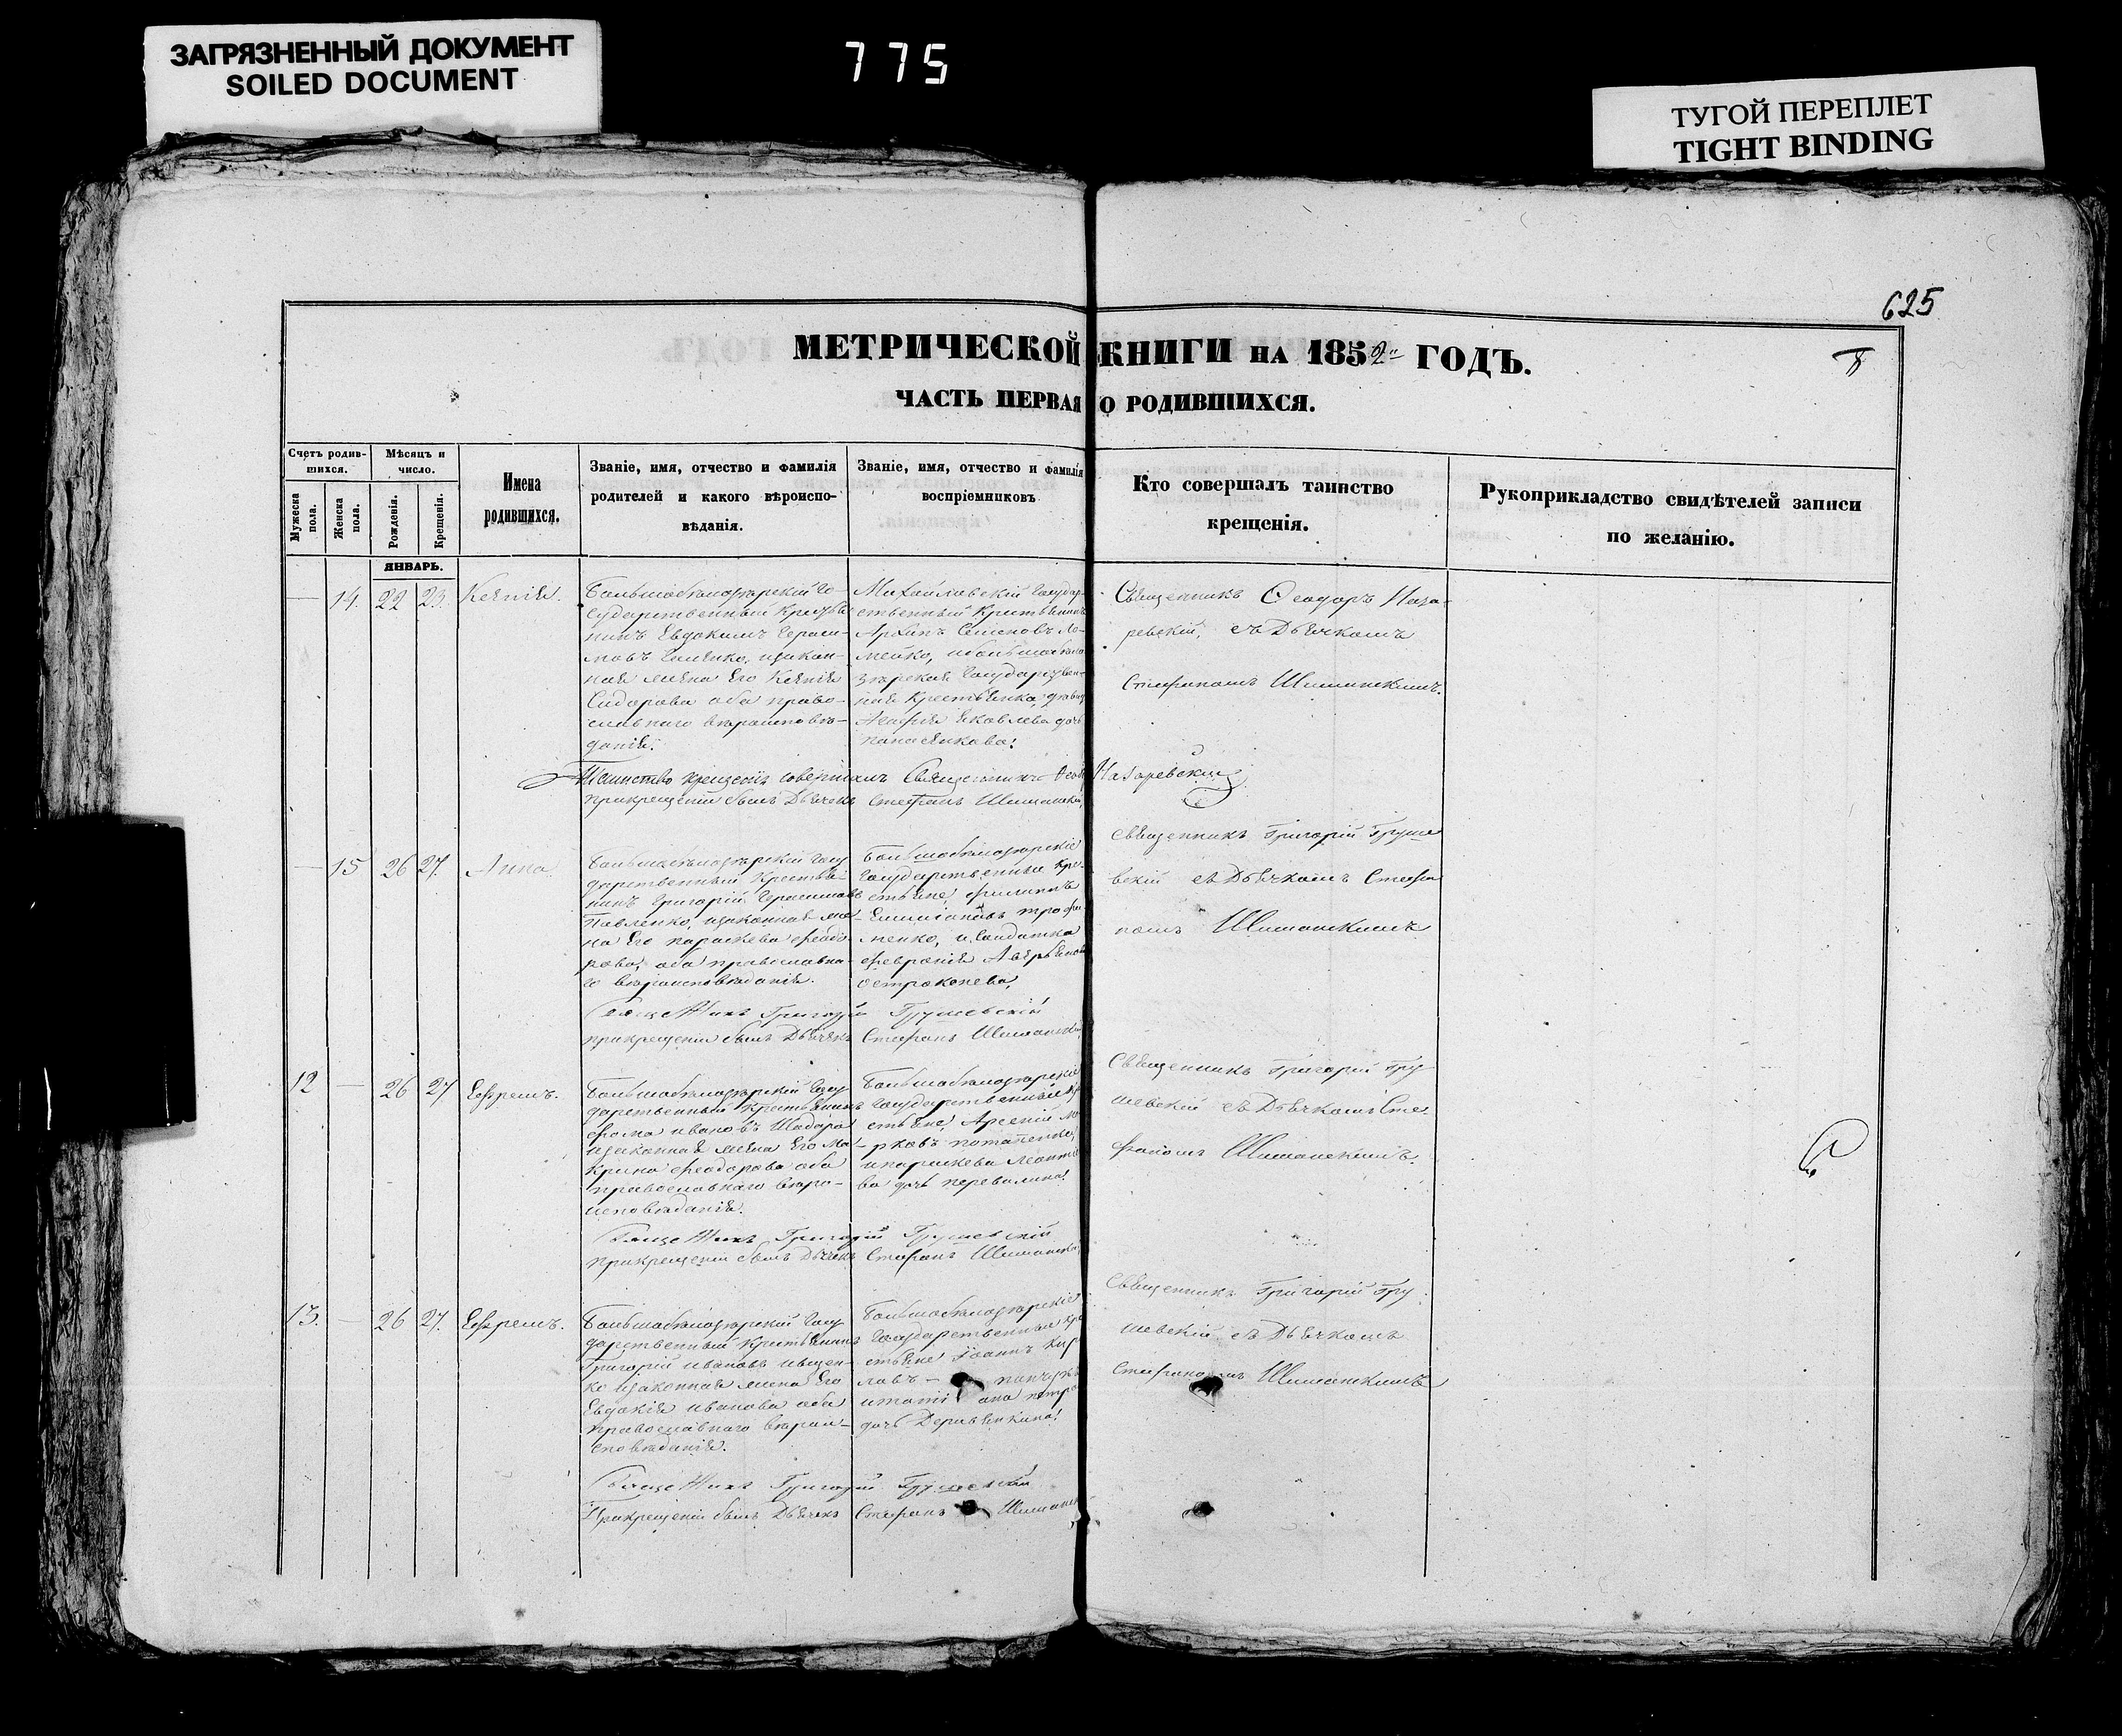 ЗАГРЯЗНЕННЫЙ ДОКУМЕНТ
SOILED DOCUMENT
775
ТУГОЙ ПЕРЕПЛЕТ
TIGHT BINDING
625
МЕТРИЧЕСКОЙ КНИГИ НА 1852 ГОДЪ.
8
ЧАСТЬ ПЕРВАЯ О РОДИВШИХСЯ.
Счетъ родив-
шихся.
Мужеска пола.
Женска пола.
Мѣсяцъ и
число.
Рожденія.
Крещенія.
Имена
родившихся.
Званіе, имя, отчество и фамилія
родителей и какого вѣроиспо-
вѣданія.
Званіе, имя, отчество и фамилія
воспріемниковъ
Кто совершалъ таинство
крещенія.
Рукоприкладство свидѣтелей записи
по желанію.
ЯНВАРЬ.
— 14. 22 23. Ксенія.
Большобѣлозѣрскій Го-
сударственный Крестья-
нинъ Евдокимъ Гераси-
мовъ
законная жена Его Ксенія
Сидорова оба право-
славнаго вѣроисповѣ-
данія.
Михайловскій Государ-
ственный Крестьянинъ
Семеновъ Ло-
мейко, и большобѣло-
зѣрская Государствен-
ная Крестьянка
Агафія Яковлева дочь
Священникъ Ѳеодоръ Наза-
ревскій, съ Дьячкомъ
Стефаномъ Шиманскимъ.
Таинство крещенія совершалъ Священникъ Ѳеод Назаревскій
при крещеніи былъ Дьячекъ Стефанъ Шиманскій
— 15 26 27. Анна.
Большобѣлозѣрскій Госу
дарственный Крестья-
нинъ Григорій Герасимовъ
Павленко, и законная же-
на Его параскева Ѳеодо-
рова, оба православна-
го вѣроисповѣданія.
Большобѣлозѣрскіе
Государственные Кре-
стьяне, филиппъ
трофи-
менко, и Солдатка
февронія
Священникъ Григорій Груше
вскій съ Дьячкомъ Стефа
номъ Шиманскимъ
Священникъ Григорій Грушевскій
при крещеніи былъ Дьячекъ Стефанъ Шиманскій
12 — 26 27 Ефремъ.
Большобѣлозѣрскій Госу
дарственный Крестьянинъ
Фома ивановъ
и законная жена Его Ма-
крина Ѳеодорова оба
православнаго вѣро-
исповѣданія.
Большобѣлозѣрскіе
Государственные Кре
стьяне, Арсеній Ма
рковъ потапенко,
и параскева Леонтіе
ва дочь
Священникъ Григорій Гру
шевскій съ Дьячкомъ Сте
фаномъ Шиманскимъ.
Священникъ Григорій Грушевскій
при крещеніи былъ Дьячекъ Стефанъ Шиманскій
13. — 26 27. Ефремъ.
Большобѣлозѣрскій Госу
дарственный Крестьянинъ
Григорій ивановъ ищен-
ко и законная жена Его
Евдокія иванова оба
православнаго вѣрои-
сповѣданія.
Большобѣлозѣрскіе
Государственные кре
стьяне Іоаннъ Кир
ловъ
дочь
Священникъ Григорій Гру
шевскій съ Дьячкомъ
Стефаномъ Шиманскимъ
Священникъ Григорій Грушевскій
При крещеніи былъ Дьячекъ Стефанъ Шиманск